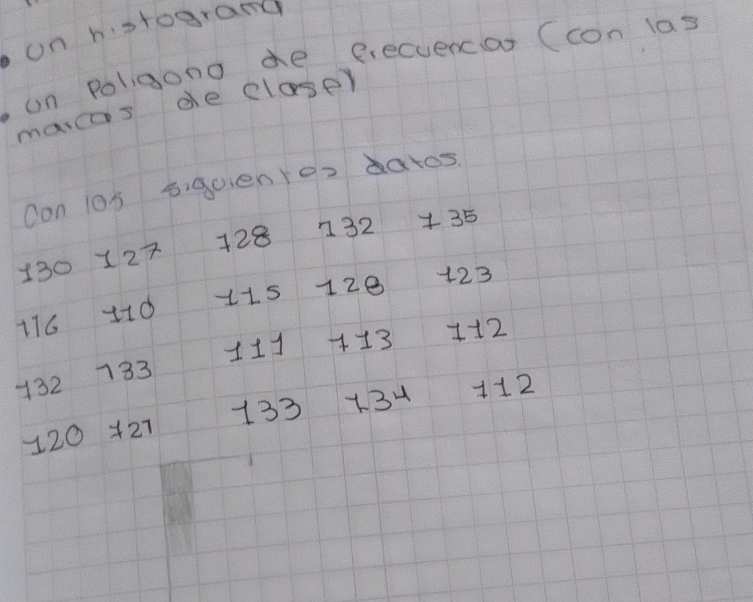 • un histograma
• un Poligono de frecuencias (con las
marcas de clase)
Con los siguientes datos.
130 127 128 132 135
116 110 115 128 123
132 133 111 113 112
120 121 133 134 112